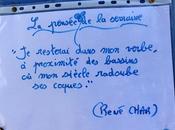 La pensée de la semaine
"Je resterai dans mon verbe,
à proximité des bassins
où mon siècle radoube
ses coques."
(René CHAR)